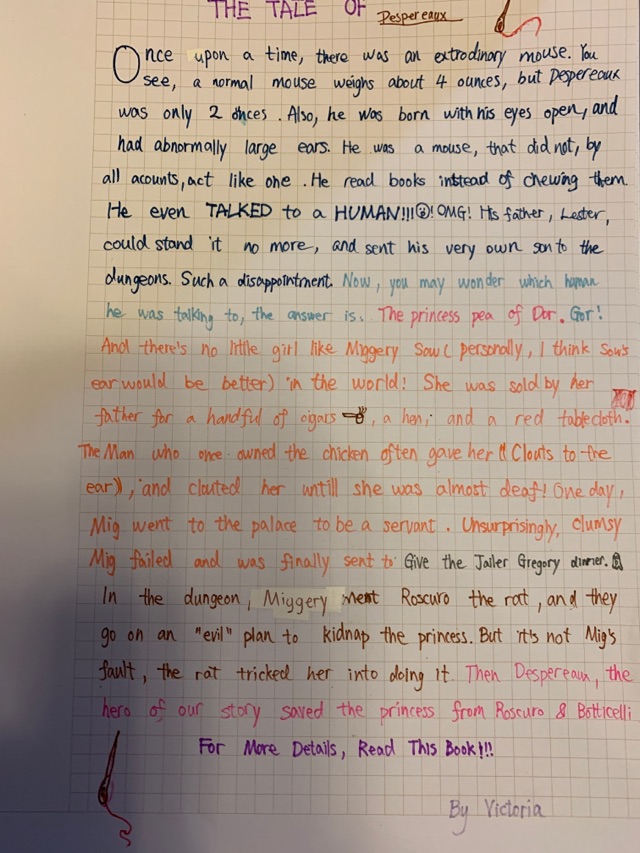 THE TALE OF Despereaux
Once upon a time, there was an extrodinary mouse. You
see, a normal mouse weighs about 4 ounces, but Despereaux
was only 2 onces. Also, he was born with his eyes open, and
had abnormally large ears. He was a mouse, that did not, by
all acounts, act like one. He read books instead of chewing them.
He even TALKED to a HUMAN!!!! OMG! His father, Lester,
could stand it no more, and sent his very own son to the
dungeons. Such a disappointment. Now, you may wonder which human
he was talking to, the answer is. The princess pea of Dor. Gor!
And there's no little girl like Miggery Sow( personally, I think Sow's
ear would be better) in the world! She was sold by her
father for a handful of cigars, a hen, and a red tablecloth.
The Man who one owned the chicken often gave her (( Clouts to the
ear)), and clouted her untill she was almost deaf! One day,
Mig went to the palace to be a servant. Unsurprisingly, clumsy
Mig failed and was finally sent to Give the Jailer Gregory dinner.
In the dungeon, Miggery ment Roscuro the rat, and they
go on an "evil" plan to kidnap the princess. But it's not Mig's
fault, the rat tricked her into doing it. Then Despereaux, the
hero of our story saved the princess from Roscuro & Botticelli
For More Details, Read This Book!!!
By Victoria